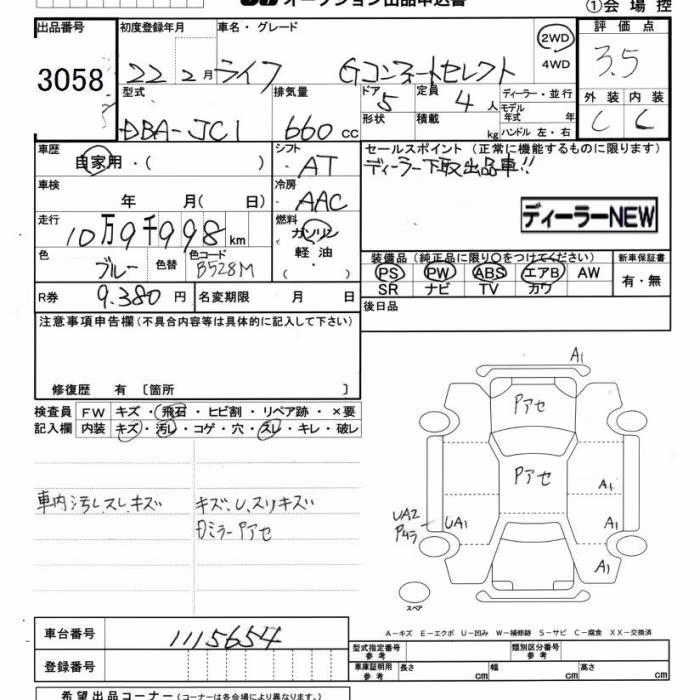 オークション出品申込書
①会場控
出品番号 初度登録年月 車名・グレード 評価点
3058 22 2月 ライフ Gコンフォートセレクト 2WD 4WD 3.5
型式 排気量 ドア 定員 ディーラー・並行 外装 内装
DBA-JC1 660cc 5 4人 モデル年式 年 C C
形状 積載 kg ハンドル 左・右
車歴 シフト セールスポイント (正常に機能するものに限ります)
自家用・( ) AT ディーラー下取出品車!!
車検 冷房
年 月( 日) AAC
ディーラーNEW
走行 燃料
10万9千998km ガソリン
軽油
( ・ )
色 色替 色コード
ブルー B528M
装備品(純正品に限り○をつけてください) 新車保証書
PS PW ABS エアB AW 有・無
SR ナビ TV カワ
R券 9.380円 名変期限 月 日
後日品
注意事項申告欄(不具合内容等は具体的に記入して下さい)
修復歴 有 〔箇所 〕
検査員 FW キズ・飛石・ヒビ割・リペア跡・×要
記入欄 内装 キズ・汚レ・コゲ・穴・スレ・キレ・破レ
車内汚レ.スレ.キズ キズ、U、スリキズ
ミラーPアセ
A1
Pアセ
Pアセ
A1
UA2
UA1 A1
A1
スペア
A-キズ E-エクボ U-凹み W-補修跡 S-サビ C-腐食 XX-交換済
車台番号 1115654
型式指定番号 参考 類別区分番号 参考
登録番号
車庫証明用 参考 長さ cm 幅 cm 高さ cm
希望出品コーナー(コーナーは各会場により異なります。)